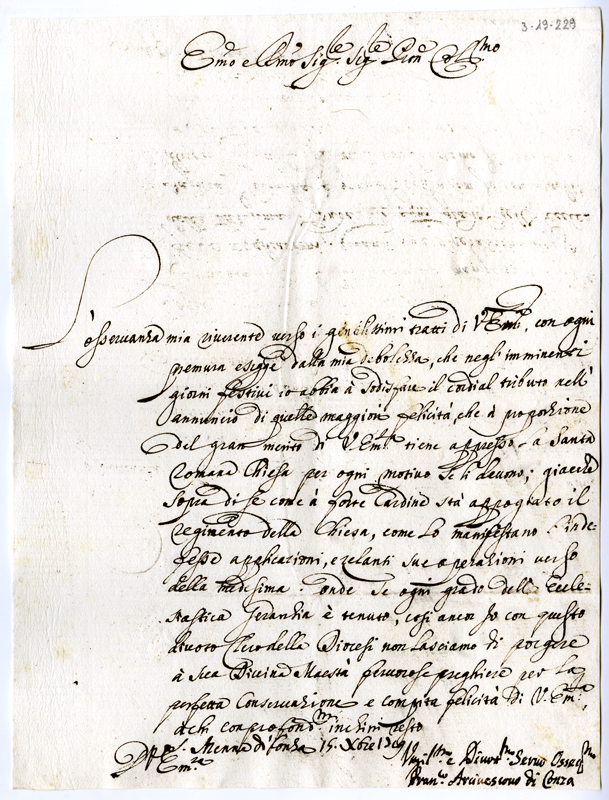 3-19-229
Em̃o e Rmo Sig.re Sig.re Pron Col.mo
L'osservanza mia riverente verso i gentilissimi tratti di V. Em.za, con ogni
premura esigge dalla mia debolezza, che negl'imminenti
giorni festivi io abbia à sodisfare il cordial tributo nell'
annuncio di quelle maggiori felicità, che à proporzione
del gran merito di V. Em.za tiene appresso la Santa
Romana Chiesa per ogni motivo se li devono; giacche
sopra di se come à forte Cardine stà appoggiato il
regimento della Chiesa, come lo manifestano l'inde-
fesse applicazioni, e zelanti sue operazioni verso
della medesima. Onde se ogni grado dell'Eccle-
siastica Gerarchia è tenuto, così ancor Io con questo
divoto Clero della Diocesi non lasciamo di porgere
à Sua Divina Maestà fervorose preghiere per la
perfetta Conservazione e compita felicità di V. Em.za,
à chi con profond.mo inchino resto
Di V. Em.za S. Menna di Conza 15. Xbre 1719
Umil.mo e Divot.mo Servo Osseq.mo
Fran.co Arcivescovo di Conza